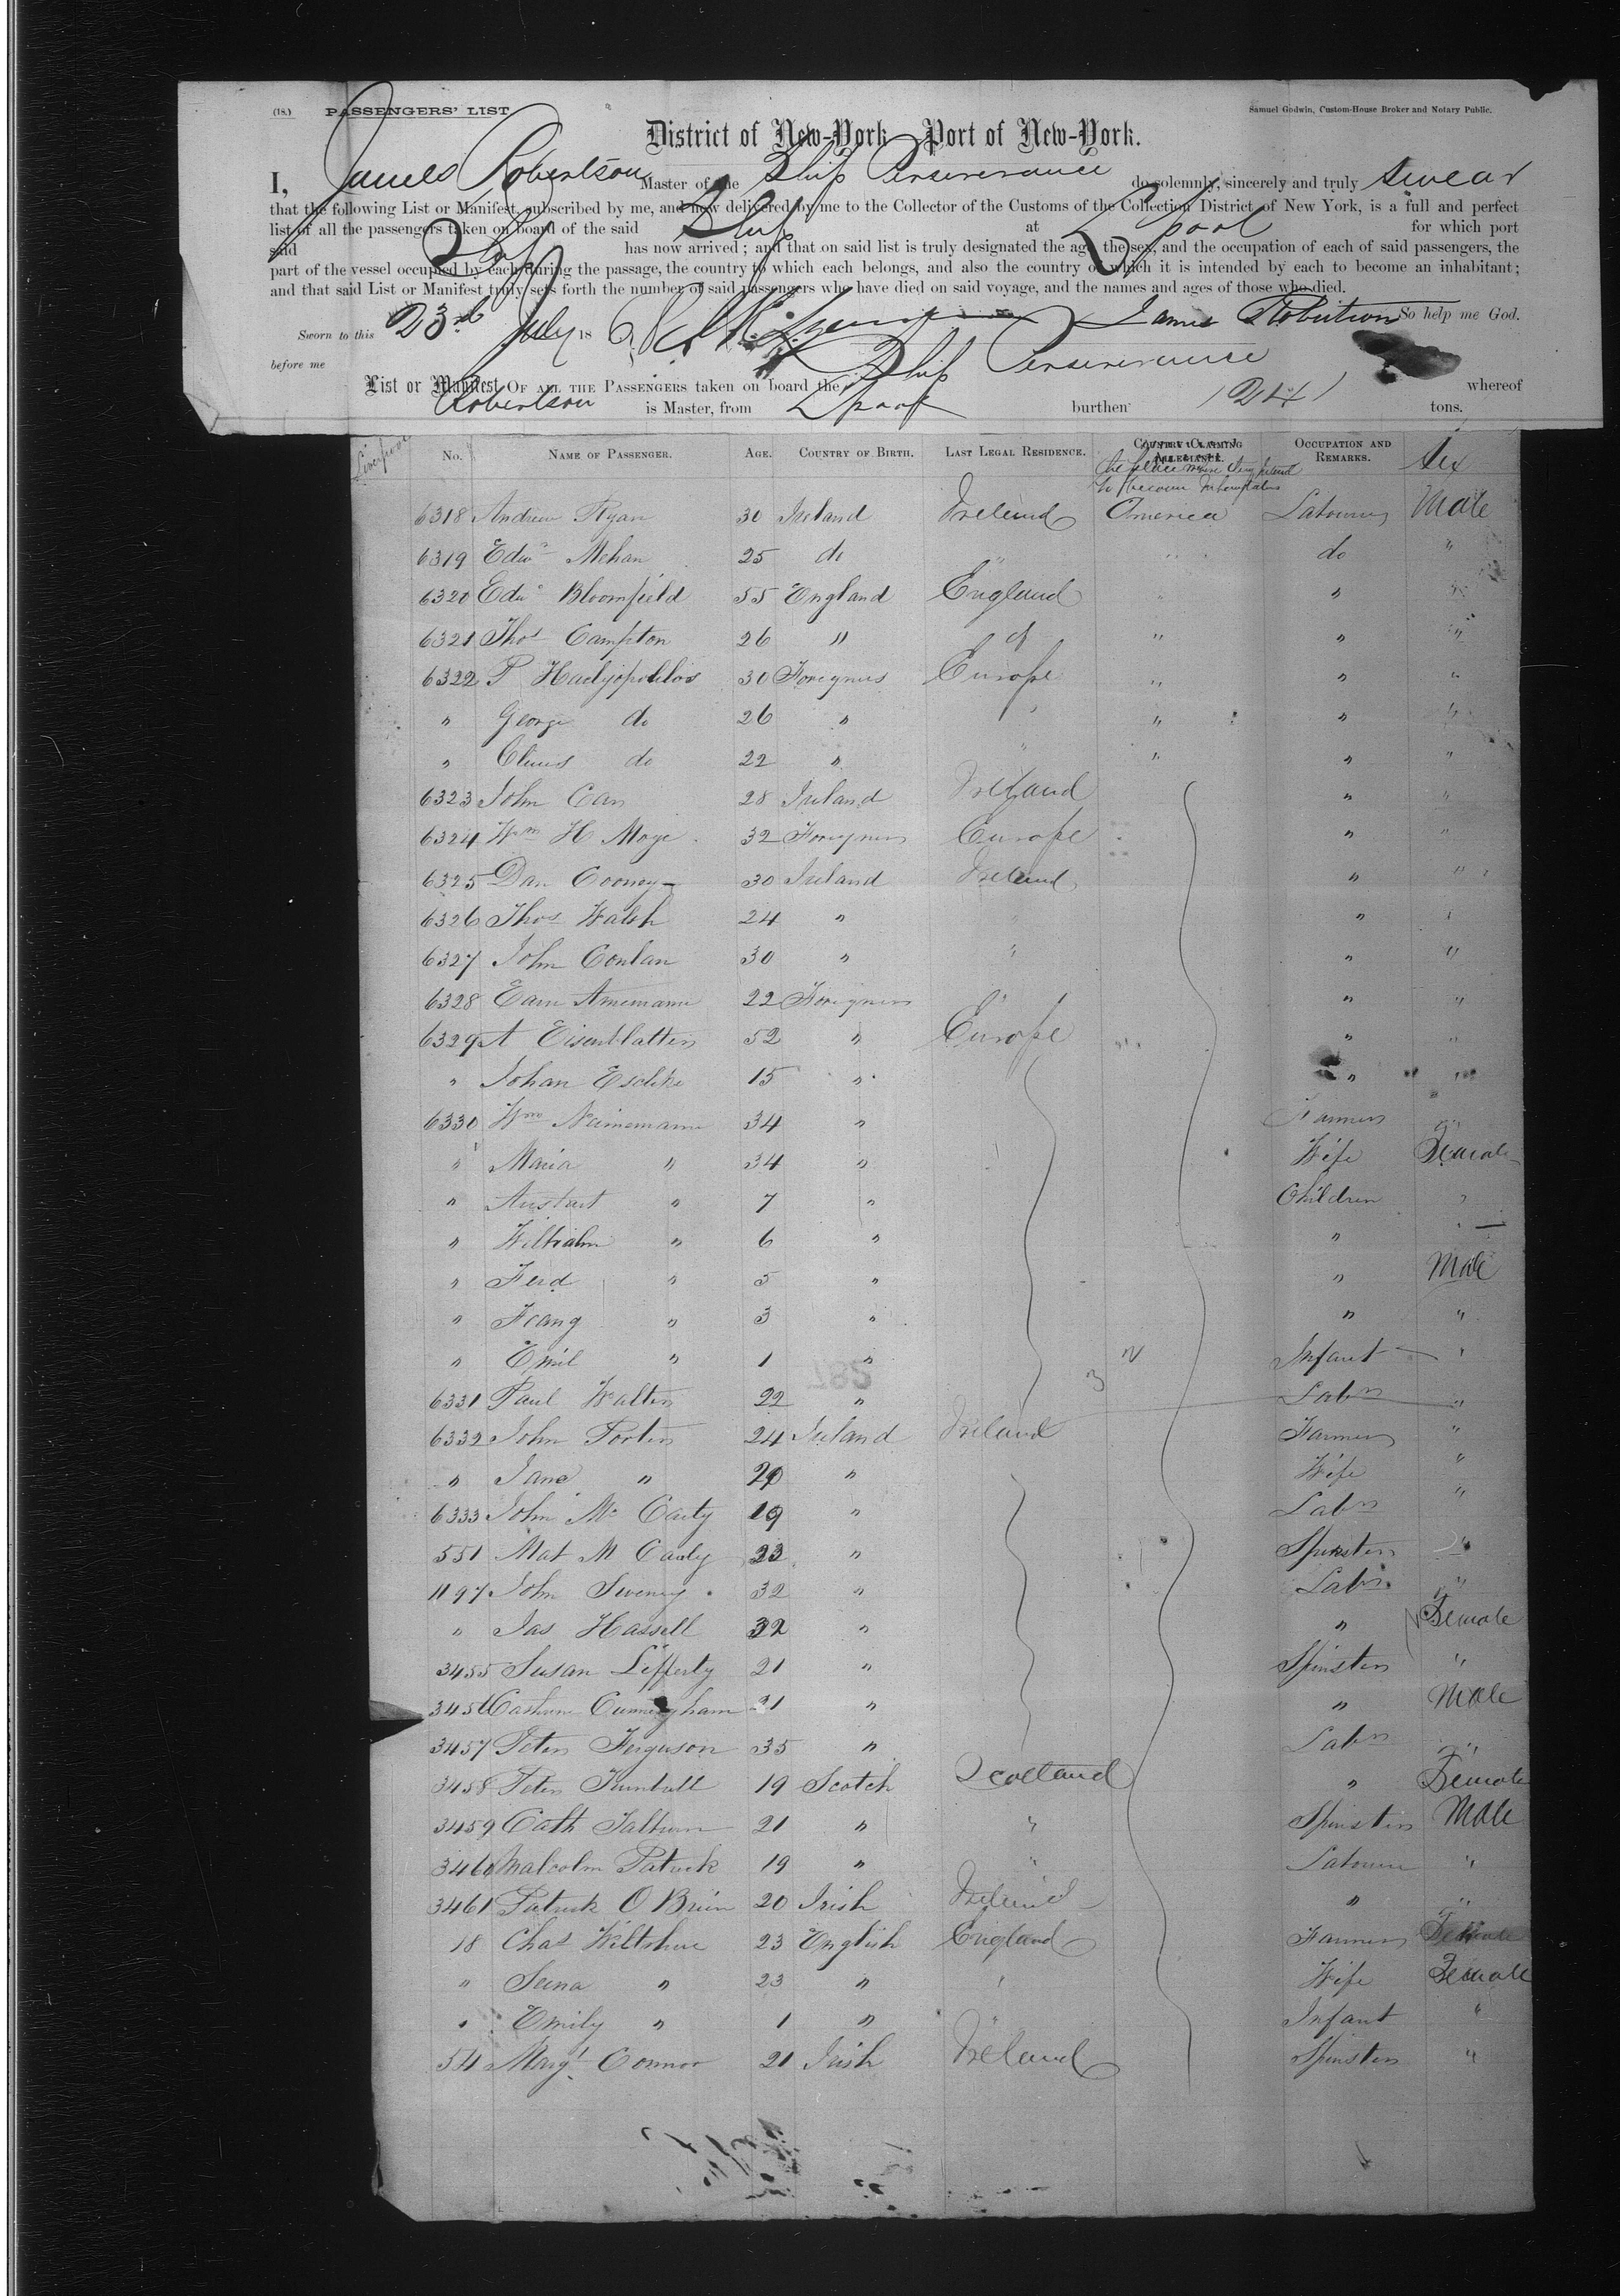 (18.) PASSENGERS' LIST
Samuel Godwin, Custom-House Broker and Notary Public.
District of New-York Port of New-York.
I, James Robertson Master of the Ship Perseverance do solemnly, sincerely and truly swear
that the following List or Manifest, subscribed by me, and now delivered by me to the Collector of the Customs of the Collection District of New York, is a full and perfect
list of all the passengers taken on board of the said Ship at Lpool for which port
said Ship has now arrived; and that on said list is truly designated the age, the sex, and the occupation of each of said passengers, the
part of the vessel occupied by each during the passage, the country to which each belongs, and also the country of which it is intended by each to become an inhabitant;
and that said List or Manifest truly sets forth the number of said passengers who have died on said voyage, and the names and ages of those who died.
Sworn to this 23rd July 18 6 James Robertson So help me God.
before me
List or Manifest OF ALL THE PASSENGERS taken on board the Ship Perseverance whereof
Robertson is Master, from Lpool burthen tons.
Liverpool No. NAME OF PASSENGER. AGE. COUNTRY OF BIRTH. LAST LEGAL RESIDENCE. COUNTRY CLAIMING ALLEGIANCE. OCCUPATION AND REMARKS. Sex
the place where they intend
to become Inhabitants
6318 Andrew Ryan 30 Ireland Ireland America Labourer Male
6319 Edwd Mehan 25 do " " do "
6320 Edwd Bloomfield 55 England England " " "
6321 Thos Campton 26 " " " "
6322 P 30 Foreigners Europe " " "
" George do 26 " " " " "
" do 22 " " " " "
6323 John Carr 28 Ireland Ireland " "
6324 Wm H Moye 32 Foreigners Europe " "
6325 Dan Cooney 30 Ireland Ireland " "
6326 Thos Walsh 24 " " " "
6327 John Conlan 30 " " " "
6328 22 Foreigners " " "
6329 A 52 " Europe " "
" Johan Eschke 15 " " "
6330 Wm 34 " Farmer "
" Maria " 34 " Wife Female
" " 7 " Children "
" Wilhalm " 6 " " "
" Ferd " 5 " " Male
" " 3 " " "
" Emil " 1 " Infant "
6331 Paul Walter 22 " Labr "
6332 John Porter 24 Ireland Ireland Farmer "
" Jane " 20 " Wife "
6333 John Mc Carty 19 " Labr "
551 Mat M Cauly 23 " Spinster "
1197 John Sweeny 32 " Labr "
" Jas Hassell 32 " " Female
3455 Susan Lifferty 21 " Spinster "
3456 Cunningham 21 " " Male
3457 Peter Ferguson 35 " Labr "
3458 Peter Turnbull 19 Scotch Scotland " Female
3459 Cath 21 " " Spinster Male
3460 Malcolm Patrick 19 " " Labourer "
3461 Patrick O Brien 20 Irish Ireland " "
18 Chas Wiltshire 23 English England Farmer Female
" " 23 " " Wife Female
" Emily " 1 " " Infant "
54 Margt Connor 21 Irish Ireland Spinster "